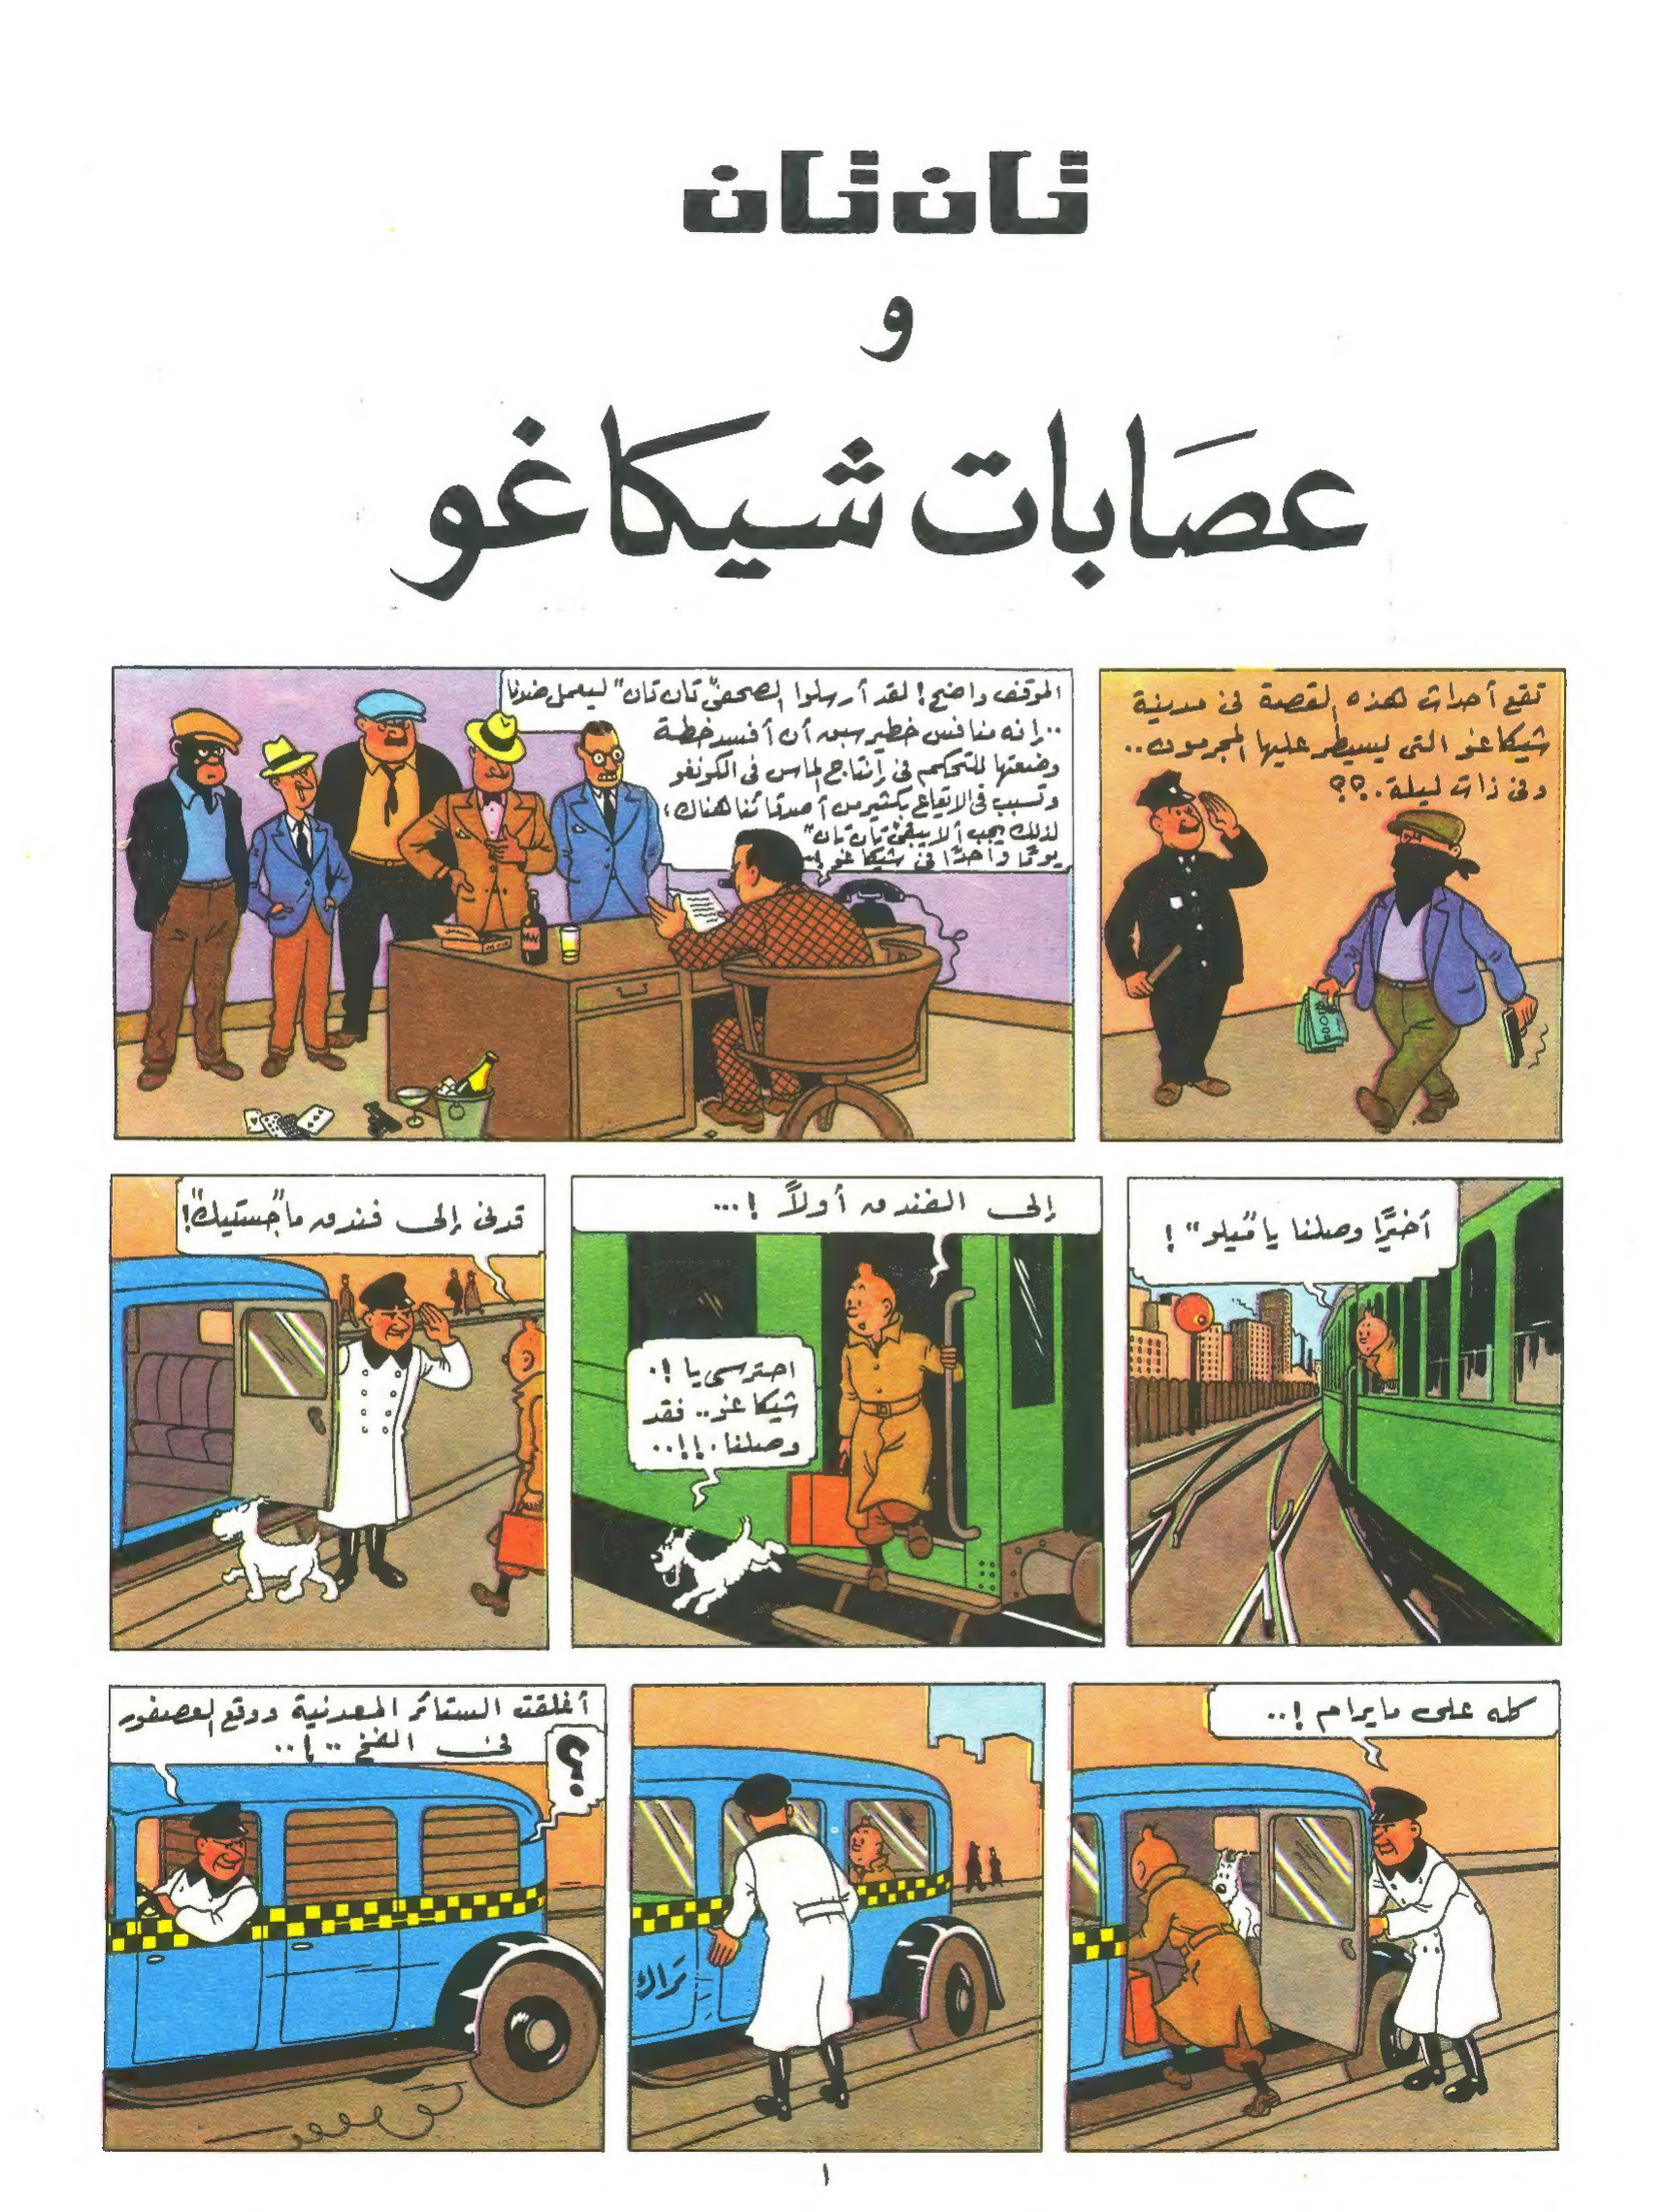 تان تان
و
عصَابات شيكاغو
تقع أحداث هذه القصة في مدينة
شيكاغو التي يسيطر عليها المجرمون..
وفي ذات ليلة..؟؟
الموقف واضح! لقد أرسلوا الصحفيّ "تان تان" ليعمل ضدنا
..إنه منافس خطير سبق أن أفسد خطة
وضعتها للتحكم في إنتاج الماس في الكونغو
وتسبب في الإيقاع بكثير من أصدقائنا هناك،
لذلك يجب ألا يبقى "تان تان"
يومًا واحدًا في شيكاغو
أخيرًا وصلنا يا "ميلو"!
إلى الفندق أولاً!...
احترسي يا!.
شيكاغو.. فقد
وصلنا.!!..
قدني إلى فندق "ماجستيك"!
كله على مايرام!..
تراك
أغلقت الستائر المعدنية ووقع العصفور
في الفخ..!..
؟
١